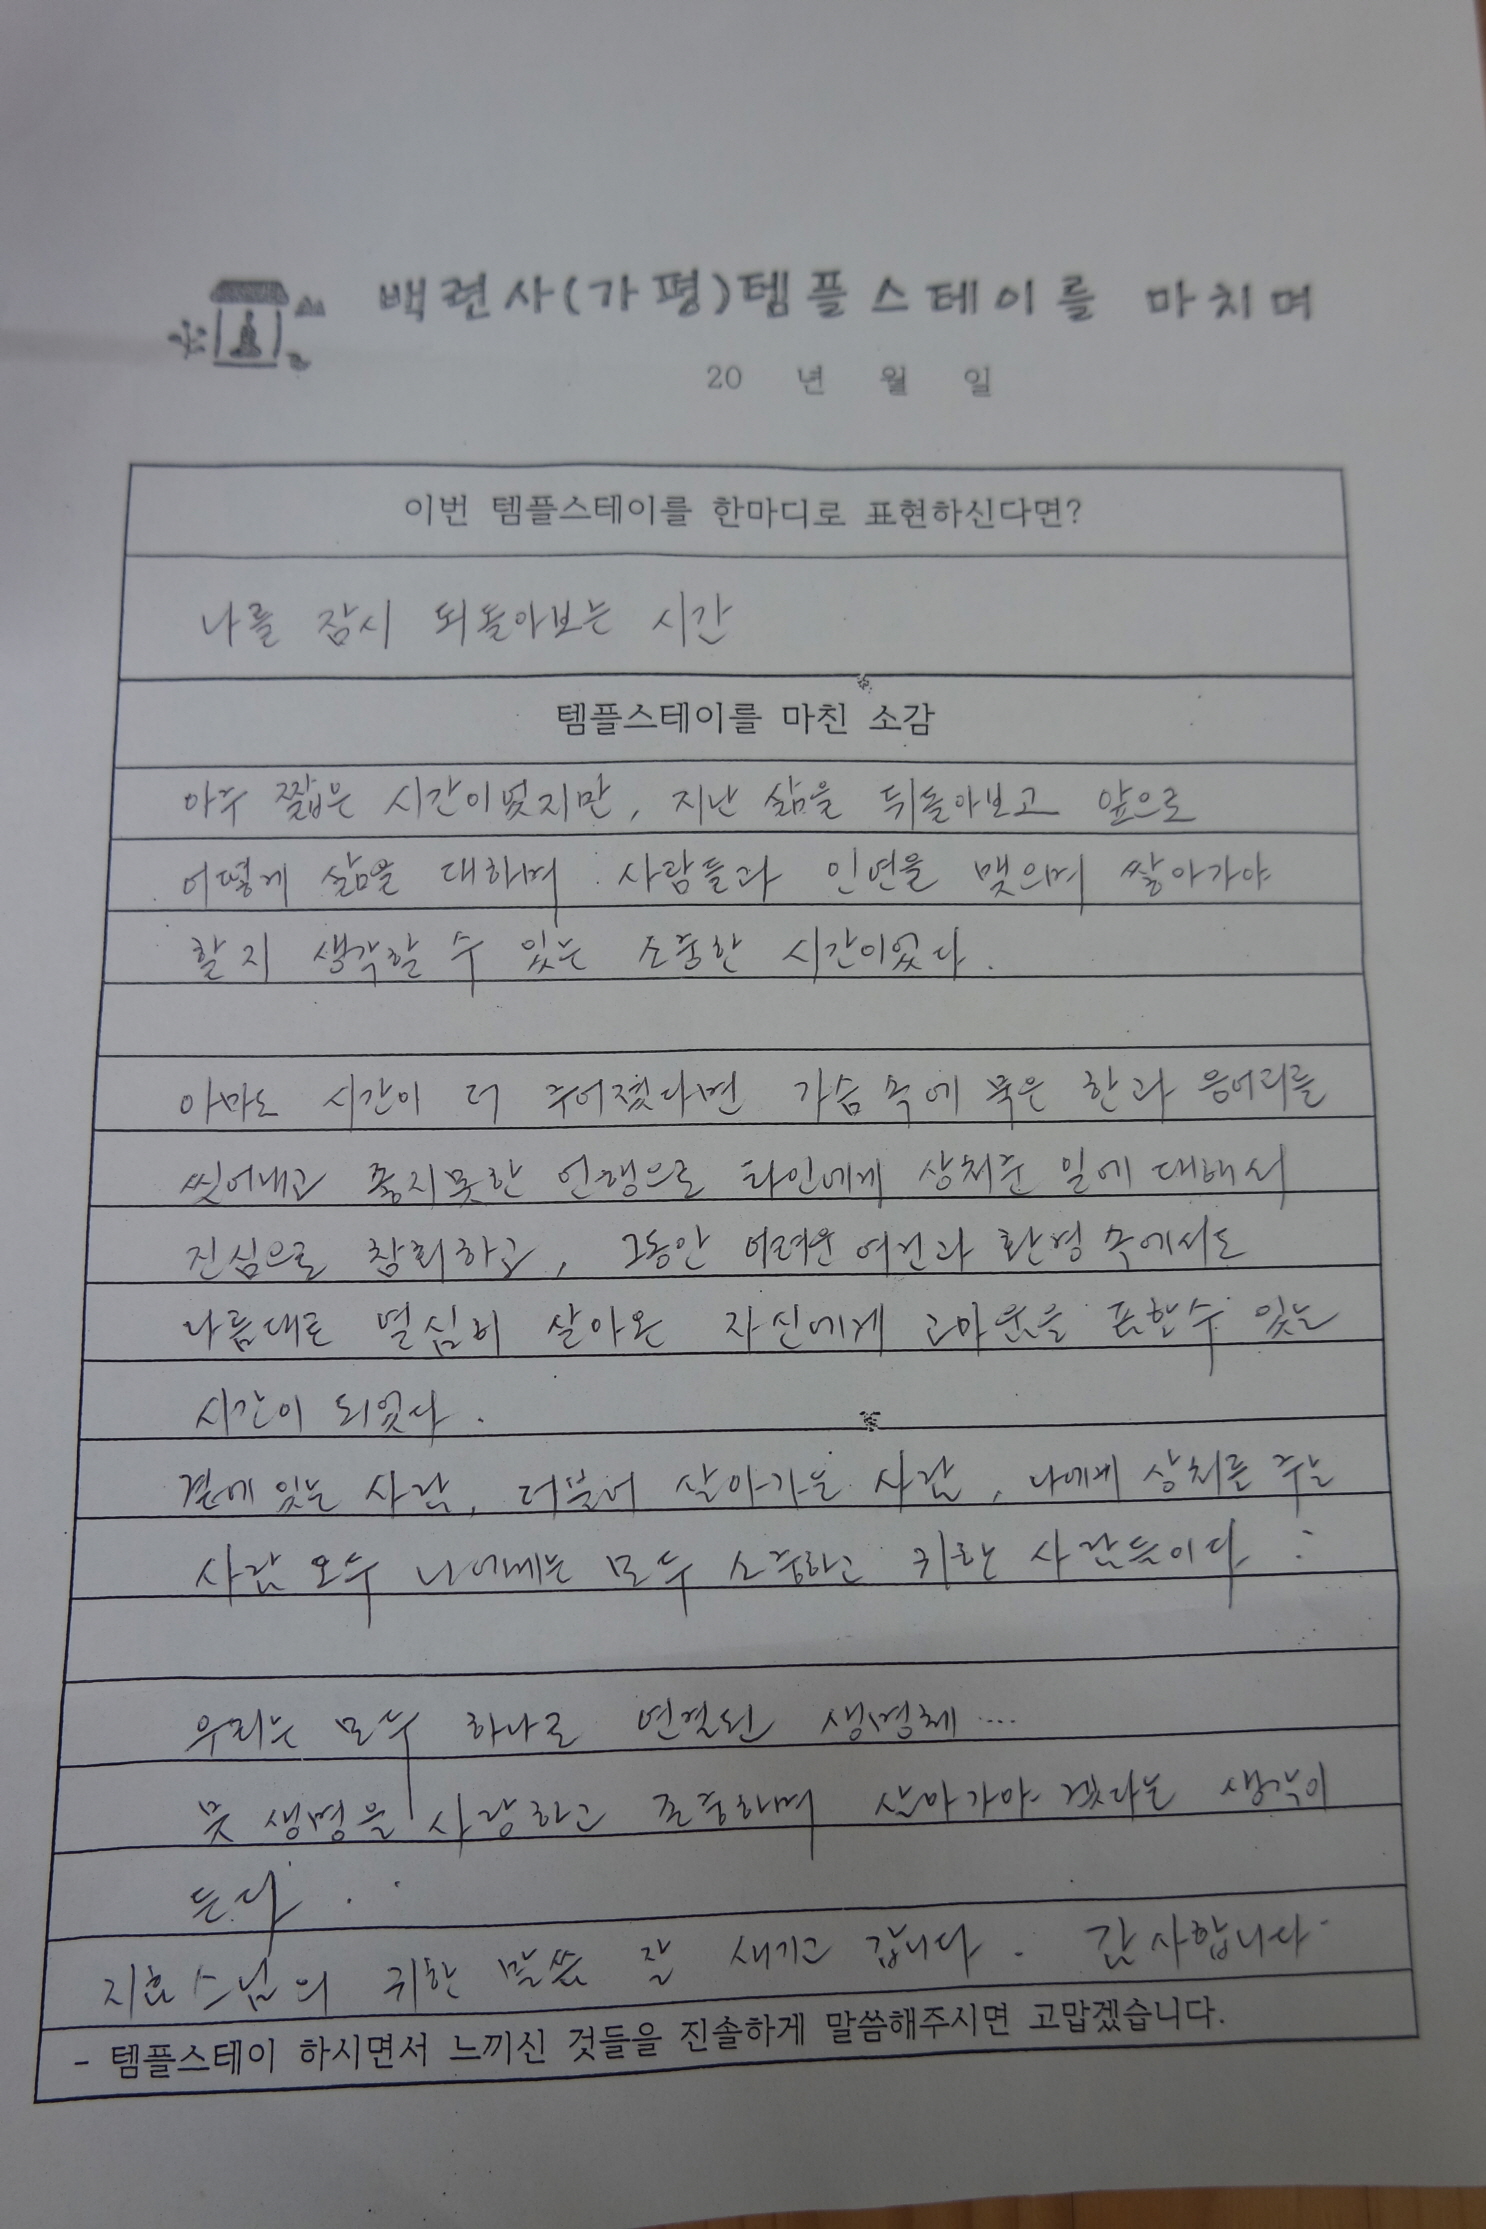 백련사(가평)템플스테이를 마치며
20 년 월 일
이번 템플스테이를 한마디로 표현하신다면?
나를 잠시 되돌아보는 시간
템플스테이를 마친 소감
아주 짧은 시간이었지만, 지난 삶을 뒤돌아보고 앞으로
어떻게 삶을 대하며 사람들과 인연을 맺으며 쌓아가야
할지 생각할 수 있는 소중한 시간이었다.
아마도 시간이 더 주어졌다면 가슴속에 묵은 한과 응어리를
씻어내고 좋지못한 언행으로 타인에게 상처준 일에 대해서
진심으로 참회하고, 그동안 어려운 여건과 환경 속에서도
나름대로 열심히 살아온 자신에게 고마움을 표할수 있는
시간이 되었다.
곁에 있는 사람, 더불어 살아가는 사람, 나에게 상처를 주는
사람 모두 나에게는 모두 소중하고 귀한 사람들이다.
우리는 모두 하나로 연결된 생명체 ....
뭇 생명을 사랑하고 존중하며 살아가야 겠다는 생각이
든다. .
지효스님의 귀한 말씀 잘 새기고 갑니다. 감사합니다.
- 템플스테이 하시면서 느끼신 것들을 진솔하게 말씀해주시면 고맙겠습니다.